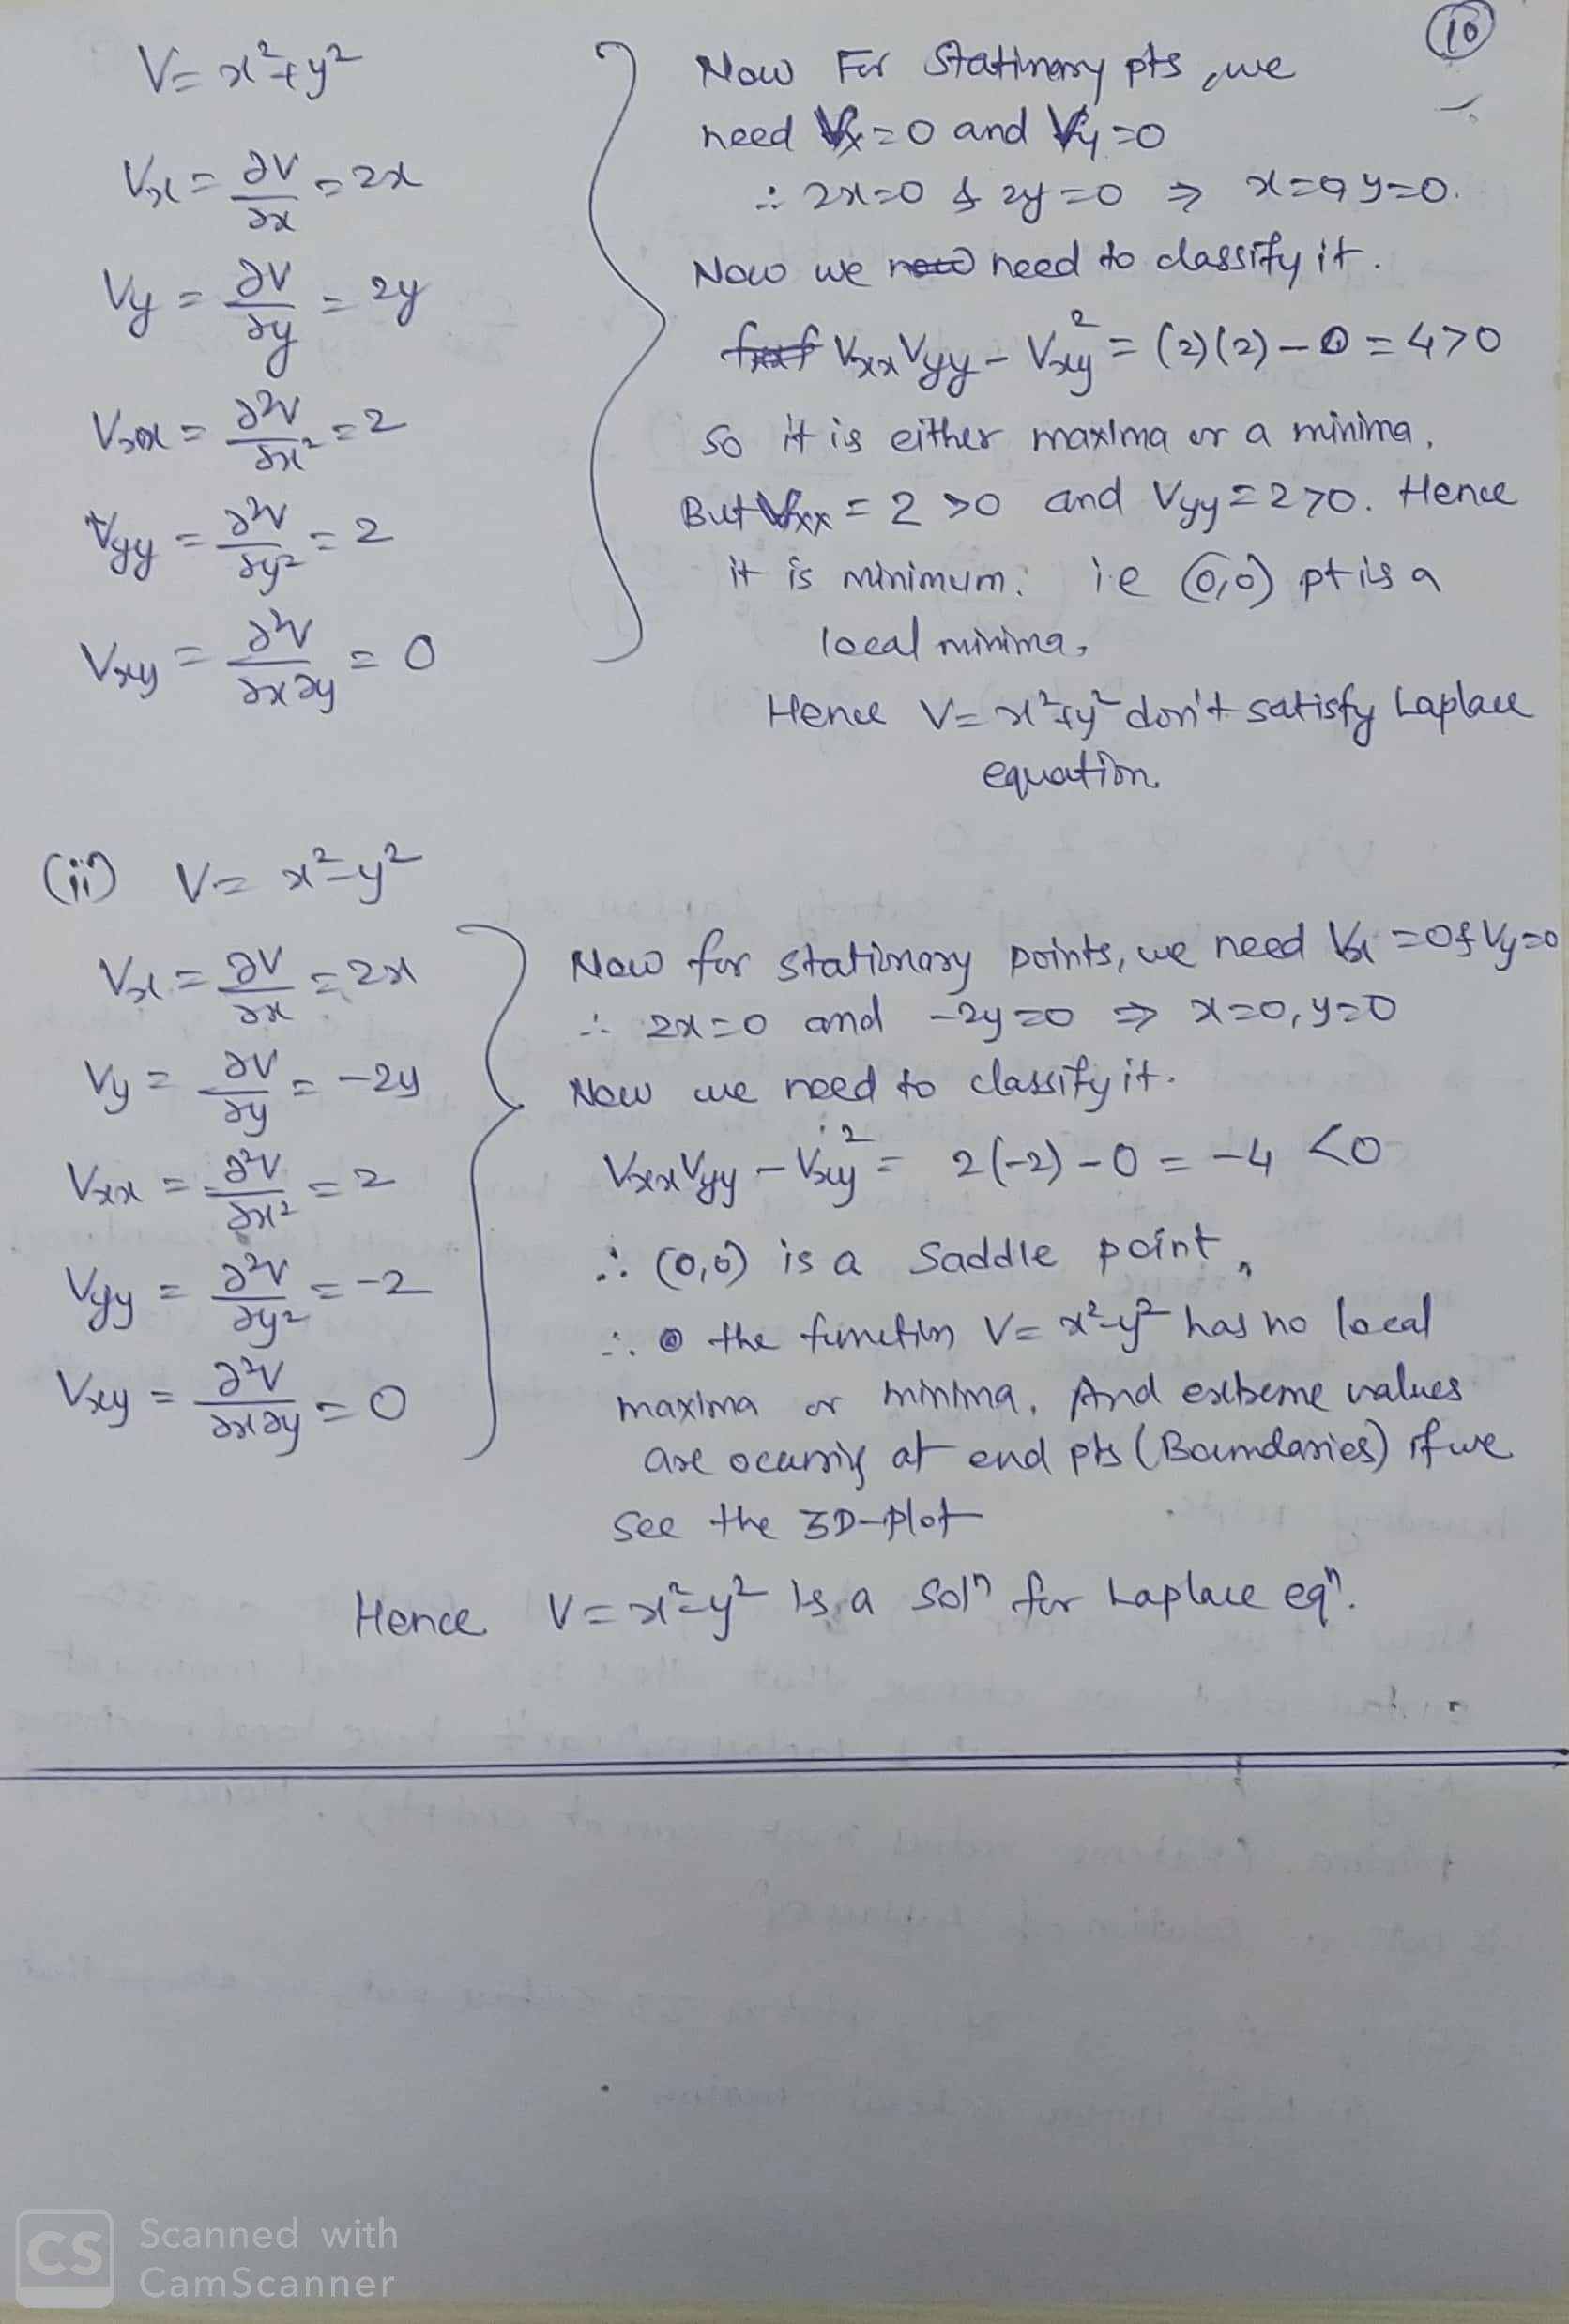 10
V = x²+y²
Vx = ∂V/∂x = 2x
Vy = ∂V/∂y = 2y
Vxx = ∂²V/∂x² = 2
Vyy = ∂²V/∂y² = 2
Vxy = ∂²V/∂x∂y = 0
Now For Stationary pts, we
need Vx = 0 and Vy = 0
∴ 2x=0 & 2y=0 ⇒ x=0, y=0.
Now we need to classify it.
VxxVyy - Vxy² = (2)(2) - 0 = 4>0
So it is either maxima or a minima,
But Vxx = 2 >0 and Vyy = 2>0. Hence
it is minimum. i.e (0,0) pt is a
local minima,
Hence V = x²+y² don't satisfy Laplace
equation.
(ii) V = x²-y²
Vx = ∂V/∂x = 2x
Vy = ∂V/∂y = -2y
Vxx = ∂²V/∂x² = 2
Vyy = ∂²V/∂y² = -2
Vxy = ∂²V/∂x∂y = 0
Now for stationary points, we need Vx = 0 & Vy=0
∴ 2x=0 and -2y=0 ⇒ x=0, y=0
Now we need to classify it.
VxxVyy - Vxy² = 2(-2) - 0 = -4 <0
∴ (0,0) is a Saddle point,
∴ the function V = x²-y² has no local
maxima or minima, And extreme values
are ocurring at end pts (Boundaries) if we
see the 3D-plot
Hence V = x²-y² is a Solⁿ for Laplace eqⁿ.
CS Scanned with
CamScanner